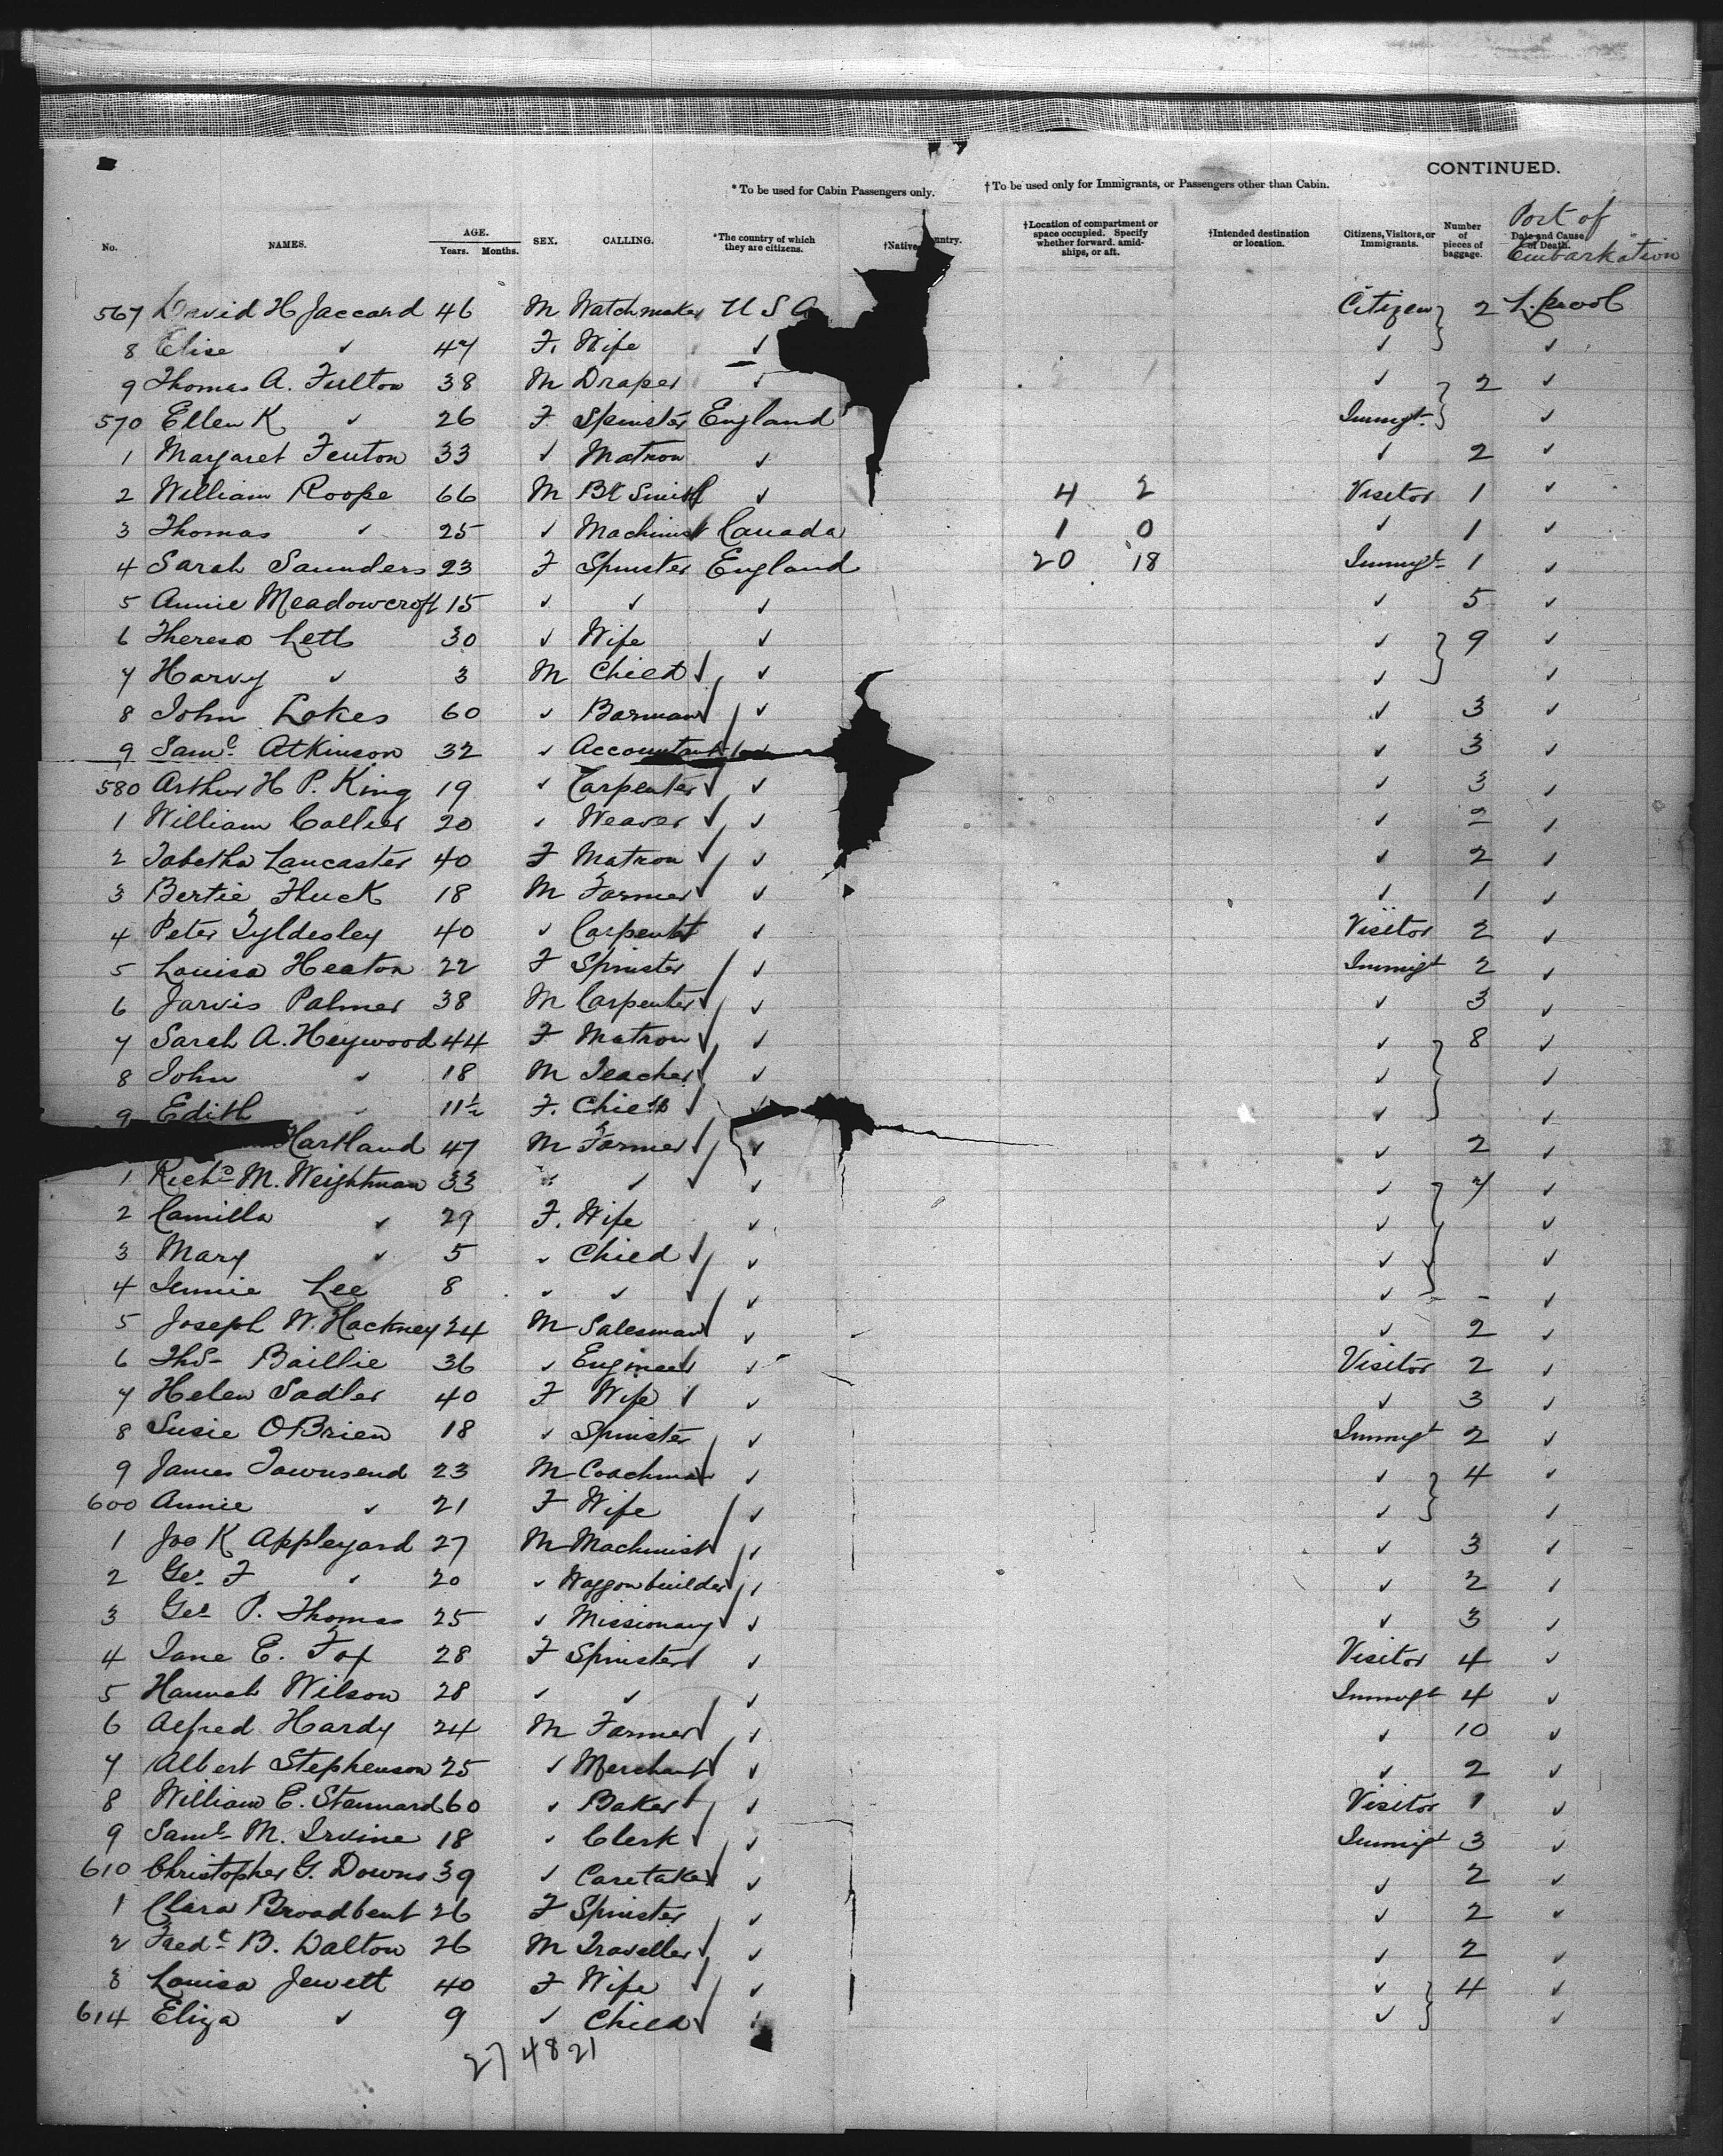 CONTINUED.
* To be used for Cabin Passengers only. † To be used only for Immigrants, or Passengers other than Cabin.
No. NAMES. AGE. Years. Months. SEX. CALLING. *The country of which they are citizens. †Native ntry. †Location of compartment or space occupied. Specify whether forward, amidships, or aft. †Intended destination or location. Citizens, Visitors, or Immigrants. Number of pieces of baggage. Date and Cause of Death. Port of Embarkation
567 David H Jaccard 46 M Watchmaker U S A Citizen } 2 L.pool
8 Elise ✓ 47 F. Wife ✓ ✓ ✓
9 Thomas A. Fulton 38 M Draper ✓ ✓ } 2 ✓
570 Ellen K ✓ 26 F Spinster England Immgt. ✓
1 Margaret Fenton 33 ✓ Matron ✓ ✓ 2 ✓
2 William Roope 66 M Bk Smith ✓ 4 2 Visitor 1 ✓
3 Thomas ✓ 25 ✓ Machinist Canada 1 0 ✓ 1 ✓
4 Sarah Saunders 23 F Spinster England 20 18 Immigt 1 ✓
5 Annie Meadowcroft 15 ✓ ✓ ✓ ✓ 5 ✓
6 Theresa Letts 30 ✓ Wife ✓ ✓ } 9 ✓
7 Harvy ✓ 3 M Child ✓ ✓ ✓
8 John Lokes 60 ✓ Barman ✓ ✓ 3 ✓
9 Saml. Atkinson 32 ✓ Accountant ✓ ✓ 3 ✓
580 Arthur H P. King 19 ✓ Carpenter ✓ ✓ 3 ✓
1 William Collier 20 ✓ Weaver ✓ ✓ 2 ✓
2 Tabetha Lancaster 40 F Matron ✓ ✓ 2 ✓
3 Bertie Fluck 18 M Farmer ✓ ✓ 1 ✓
4 Peter Tyldesley 40 ✓ Carpenter ✓ Visitor 2 ✓
5 Louisa Heaton 22 F Spinster ✓ Immigt 2 ✓
6 Jarvis Palmer 38 M Carpenter ✓ ✓ 3 ✓
7 Sarah A. Heywood 44 F Matron ✓ ✓ } 8 ✓
8 John ✓ 18 M Teacher ✓ ✓ ✓
9 Edith ✓ 11½ F. Child ✓ ✓
Hartland 47 M Farmer ✓ ✓ 2 ✓
1 Richd. M. Weightman 33 ✓ ✓ ✓ ✓ } 7 ✓
2 Camilla ✓ 29 F. Wife ✓ ✓ ✓
3 Mary ✓ 5 ✓ Child ✓ ✓ ✓
4 Jennie Lee 8 ✓ ✓ ✓ ✓ - ✓
5 Joseph W. Hackney 24 M Salesman ✓ ✓ 2 ✓
6 Thos- Baillie 36 ✓ Engineer ✓ Visitor 2 ✓
7 Helen Sadler 40 F Wife ✓ ✓ 3 ✓
8 Susie O'Brien 18 ✓ Spinster ✓ Immigt 2 ✓
9 James Townsend 23 M Coachman ✓ ✓ } 4 ✓
600 Annie ✓ 21 F Wife ✓ ✓ ✓
1 Jos K Appleyard 27 M Machinist ✓ ✓ 3 ✓
2 Geo. F ✓ 20 ✓ Waggonbuilder ✓ ✓ 2 ✓
3 Geo P. Thomas 25 ✓ Missionary ✓ ✓ 3 ✓
4 Jane E. Fox 28 F Spinster ✓ Visitor 4 ✓
5 Hannah Wilson 28 ✓ ✓ ✓ Immgt 4 ✓
6 Alfred Hardy 24 M Farmer ✓ ✓ 10 ✓
7 Albert Stephenson 25 ✓ Merchant ✓ ✓ 2 ✓
8 William E. Stannard 60 ✓ Baker ✓ Visitor 1 ✓
9 Saml- M. Irvine 18 ✓ Clerk ✓ Immigt 3 ✓
610 Christopher G. Downs 39 ✓ Caretaker ✓ ✓ 2 ✓
1 Clara Broadbent 26 F Spinster ✓ ✓ 2 ✓
2 Fredc. B. Dalton 26 M Traveller ✓ ✓ 2 ✓
3 Louisa Jewett 40 F Wife ✓ ✓ } 4 ✓
614 Eliza ✓ 9 ✓ Child ✓ ✓
27 48 21